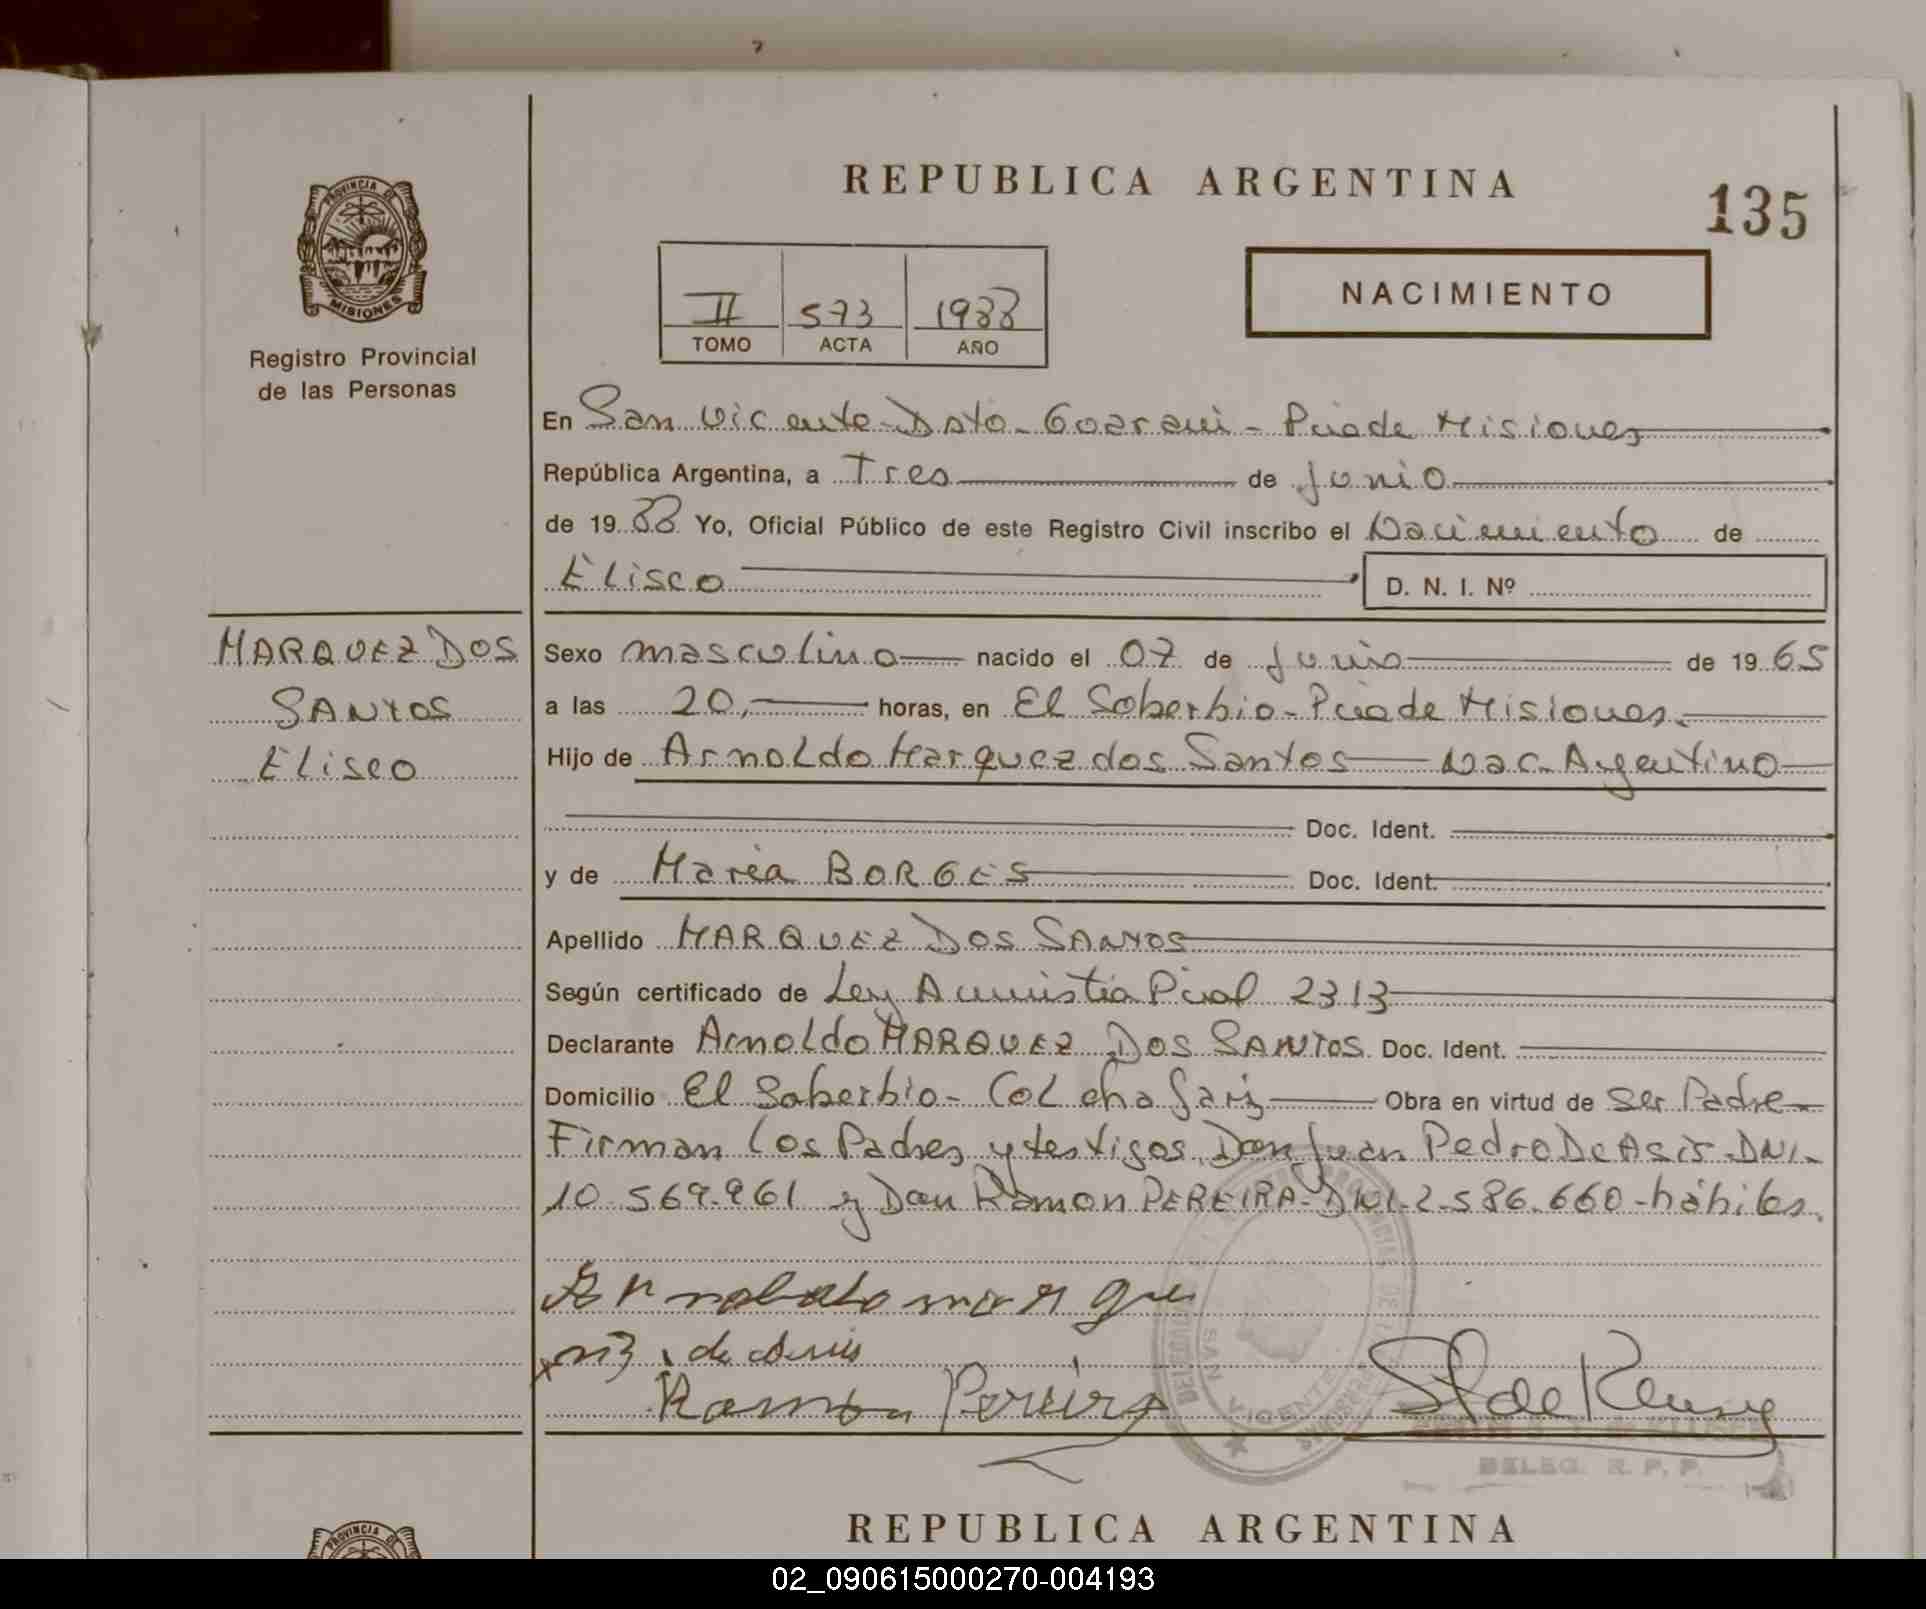 REPUBLICA ARGENTINA
135
PROVINCIA DE
MISIONES
Registro Provincial
de las Personas
II 573 1988
TOMO ACTA AÑO
NACIMIENTO
En San Vicente Dpto. Guarani - Pciade Misiones
República Argentina, a Tres de Junio
de 1988 Yo, Oficial Público de este Registro Civil inscribo el Nacimiento de
Eliseo D. N. I. Nº
MARQUEZ DOS
SANTOS
Eliseo
Sexo masculino nacido el 07 de Junio de 1965
a las 20,- horas, en El Soberbio - Pciade Misiones.
Hijo de Arnoldo Marquez dos Santos - Nac. Argentino
Doc. Ident.
y de Maria BORGES Doc. Ident.
Apellido MARQUEZ DOS SANTOS
Según certificado de Ley Amnistia Pcial 2313
Declarante Arnoldo MARQUEZ DOS SANTOS Doc. Ident.
Domicilio El Soberbio - Col Chafariz Obra en virtud de ser Padre
Firman los Padres y testigos Don Juan Pedro De Asis DNI.
10.569.961 y Don Ramon PEREIRA - DNI. 2.586.660 - hábiles.
Ramon Pereira
SAN VICENTE
DELEG. R. P. P.
REPUBLICA ARGENTINA
PROVINCIA DE
02_090615000270-004193